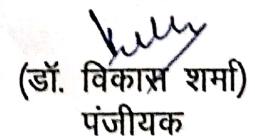 (डॉ. विकास शर्मा)
पंजीयक